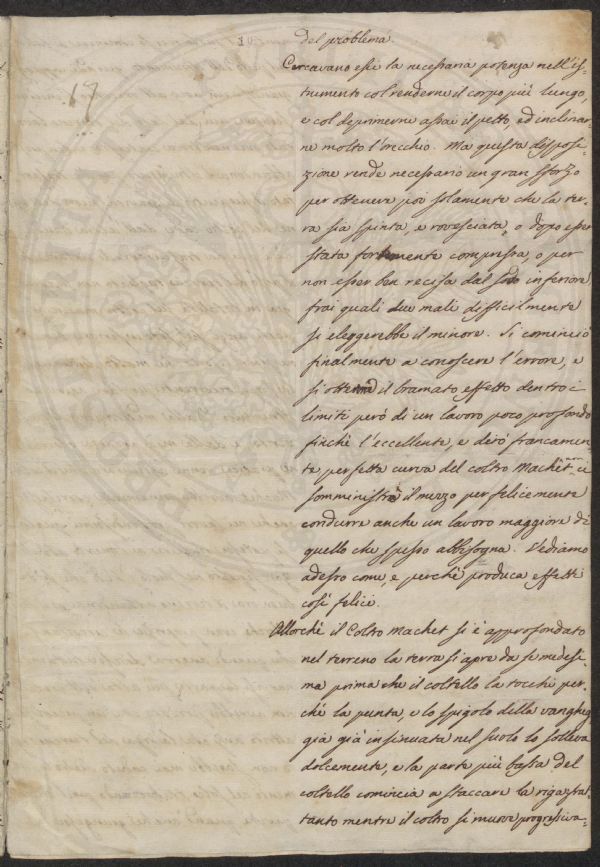 17
del problema.
Cercavano essi la necessaria potenza nell'is-
trumento col renderne il corpo più lungo,
e col deprimerne assai il petto, ed inclinar-
ne molto l'orecchio. Ma questa disposi-
zione rende necessario un gran sforzo
per ottenere poi solamente che la ter-
ra sia spinta, e rovesciata, o dopo esser
stata fortemente compressa, o per
non esser ben recisa dal lato inferiore,
frai quali due mali difficilmente
si eleggerebbe il minore. Si cominciò
finalmente a conoscere l'errore, e
si ottenne il bramato effetto dentro i
limiti però di un lavoro poco profondo
finchè l'eccellente, e dirò francamen-
te perfetta curva del coltro Machet ci
somministrò il mezzo per felicemente
condurre anche un lavoro maggiore di
quello che spesso abbisogna. Vediamo
adesso come, e perchè produca effetti
così felici.
Allorchè il Coltro Machet si è approfondato
nel terreno la terra si apre da se medesi-
ma prima che il coltello la tocchi per-
chè la punta, e lo spigolo della vangheg
già già insinuata nel suolo lo solleva
dolcemente, e la parte più bassa del
coltello comincia a staccare la riga; frat-
tanto mentre il coltro si muove progressiva-